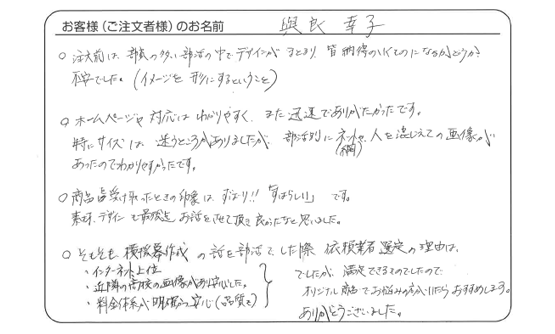 お客様（ご注文者様）のお名前 與良 幸子
○ 注文前は、部員の多い部活の中でデザインがまとまり、皆納得のいくものになるかどうか?
不安でした。（イメージを形にするということ）
○ ホームページや対応はわかりやすく、また迅速でありがたかったです。
特にサイズは迷うところがありましたが、部活別にネットや人を混じえての画像が
(網)
あったのでわかりやすかったです。
○ 商品を受け取ったときの印象は ずばり!! 「すばらしい」です。
素材、デザインで最後迄お話をさせて頂き良かったなと思いました。
○ そもそも横断幕作成の話を部活でした際 依頼業者選定の理由は、
・インターネット上位
・近隣の高校の画像があり安心した。
・料金体系が明確で安心（品質も）
でしたが、満足できるものでしたので
オリジナル商品でお悩みの方がいたらおすすめします。
ありがとうございました。